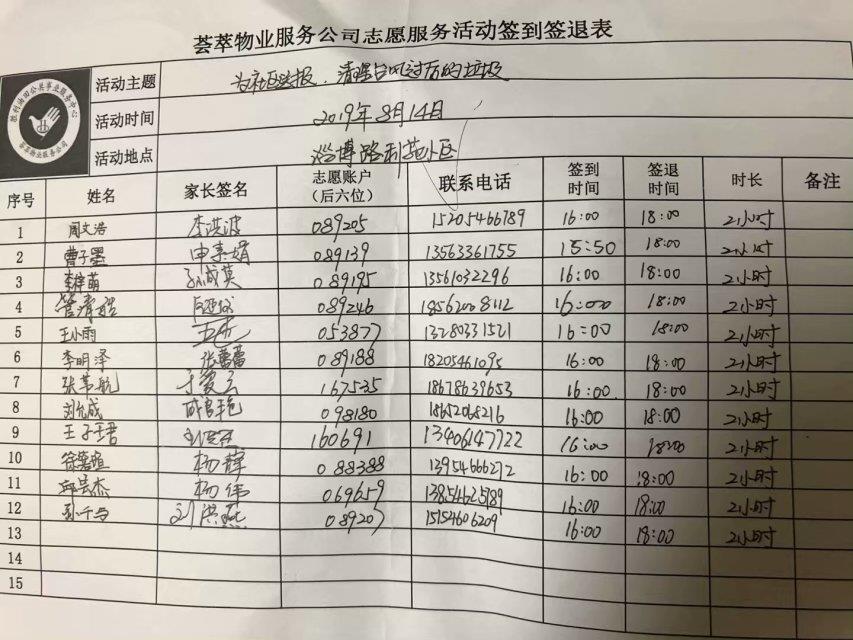 荟萃物业服务公司志愿服务活动签到签退表
胜利油田公共事业服务中心
荟萃物业服务公司
活动主题 为社区 清理台风过后的垃圾
活动时间 2019年8月14日
活动地点 淄博路利苑小区
序号 姓名 家长签名 志愿账户（后六位） 联系电话 签到时间 签退时间 时长 备注
1 周文浩 李洪波 089205 15205466789 16:00 18:00 2小时
2 曹子墨 申素娟 089139 13563361755 15:50 18:00 2小时
3 李梓萌 孙成英 089195 13561032296 16:00 18:00 2小时
4 管清 089246 18562008112 16:00 18:00 2小时
5 王小雨 053877 13280331521 16:00 18:00 2小时
6 李明泽 张蕾蕾 089188 18205461095 16:00 18:00 2小时
7 张芾航 于爱云 167535 18678639653 16:00 18:00 2小时
8 刘允成 098180 18652068216 16:00 18:00 2小时
9 王子珺 160691 13406147722 16:00 18:00 2小时
10 徐嘉暄 杨辉 088388 13954666272 16:00 18:00 2小时
11 邱昊杰 杨伟 069659 13854625189 16:00 18:00 2小时
12 孙千与 刘洪燕 089207 15154606209 16:00 18:00 2小时
13
14
15